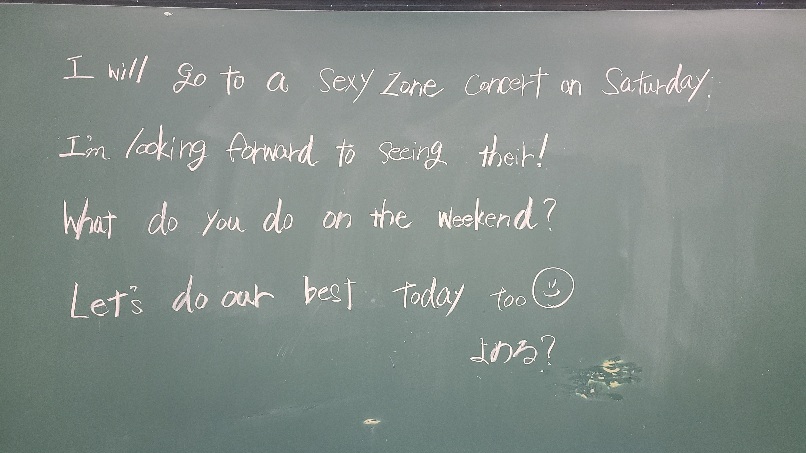 I will go to a Sexy Zone concert on Saturday.
I'm looking forward to seeing their!
What do you do on the weekend?
Let's do our best today too
よめる?